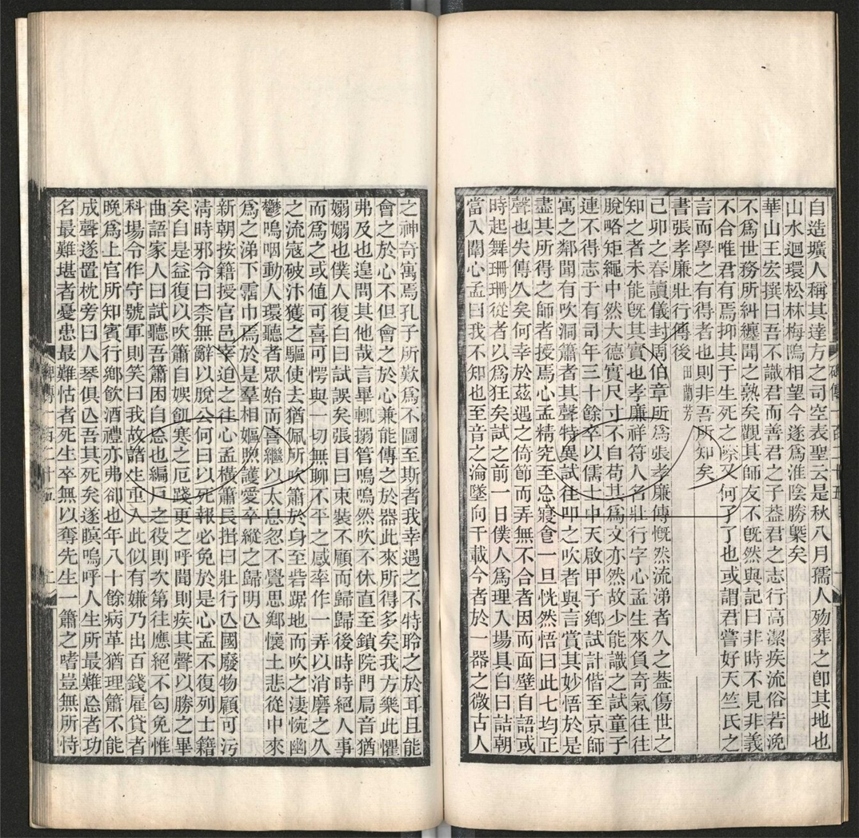 自造壙人稱其達方之司空表聖云是秋八月孺人殁葬之卽其地也
山水迴環松林梅塢相望今遂爲淮陰勝槩矣
華山王宏撰曰吾不識君而善君之子葢君之志行高潔疾流俗若浼
不爲世務所糾纏聞之熟矣觀其師友不旣然與記曰非時不見非義
不合唯君有焉抑其于生死之際又何了了也或謂君嘗好天竺氏之
言而學之有得者也則非吾所知矣
書張孝廉壯行傳後 田蘭芳
己卯之春讀儀封周伯章所爲張孝廉傳慨然流涕者久之葢傷世之
知之者未能旣其實也孝廉祥符人名壯行字心孟生來負奇氣往往
脫略矩繩中然大德實尺寸不自苟其爲文亦然故少能識之試童子
連不得志于有司年三十餘卒以儒士中天啟甲子鄉試計偕至京師
寓之鄰閒有吹洞簫者其聲特異試往叩之吹者與言賞其妙悟於是
盡其所得之師者授焉心孟精究至忘寢會一旦恍然悟曰此七均正
聲也失傳久矣何幸於茲遇之倚節而弄無不合者因而面壁自語或
時起舞珊珊從者以爲狂矣試之前一日僕人爲理入場具白曰詰朝
當入闈心孟曰我不知也至音之淪墜向千載今者於一器之微古人
之神奇寓焉孔子所歎爲不圖至斯者我幸遇之不特聆之於耳且能
會之於心不但會之於心兼能傳之於器此來所得多矣我方樂此懼
弗及也遑問其他哉言畢輒搦管嗚嗚然吹不休直至鎖院門局音猶
嫋嫋也僕人復白曰試誤矣張目曰束裝不願而歸歸後時時絕人事
而爲之或値可喜可愕與一切無聊不平之感率作一弄以消磨之久
之流寇破汴獲之驅使去猶佩所吹簫於身至砦踞地而吹之淒惋幽
鬱嗚咽動人環聽者眾始而喜繼以太息忽不覺思鄉懷土悲從中來
爲之涕下霑巾焉於是羣相嫗煦護愛卒縱之歸明亾
新朝按籍授官邑宰迫之往心孟橫簫長揖曰壯行亾國廢物顧可污
淸時邪令曰柰無辭以脫公何曰以死報必免於是心孟不復列士籍
矣自是益復以吹簫自娛飢寒之厄踐更之呼聞則疾其聲以勝之畢
曲語家人曰試聽吾簫困自忘也編戸之役則次第往應絕不勾免惟
科場令作守號軍則笑曰我故諸生重入此似有嫌乃出百錢雇貸者
晚爲上官所知賓行鄉飲酒禮亦弗卻也年八十餘病革猶理簫不能
成聲遂置枕旁曰人琴俱亾吾其死矣遂瞑嗚呼人生所最難忘者功
名最難堪者憂患最難怙者死生卒無以奪先生一簫之嗜豈無所恃